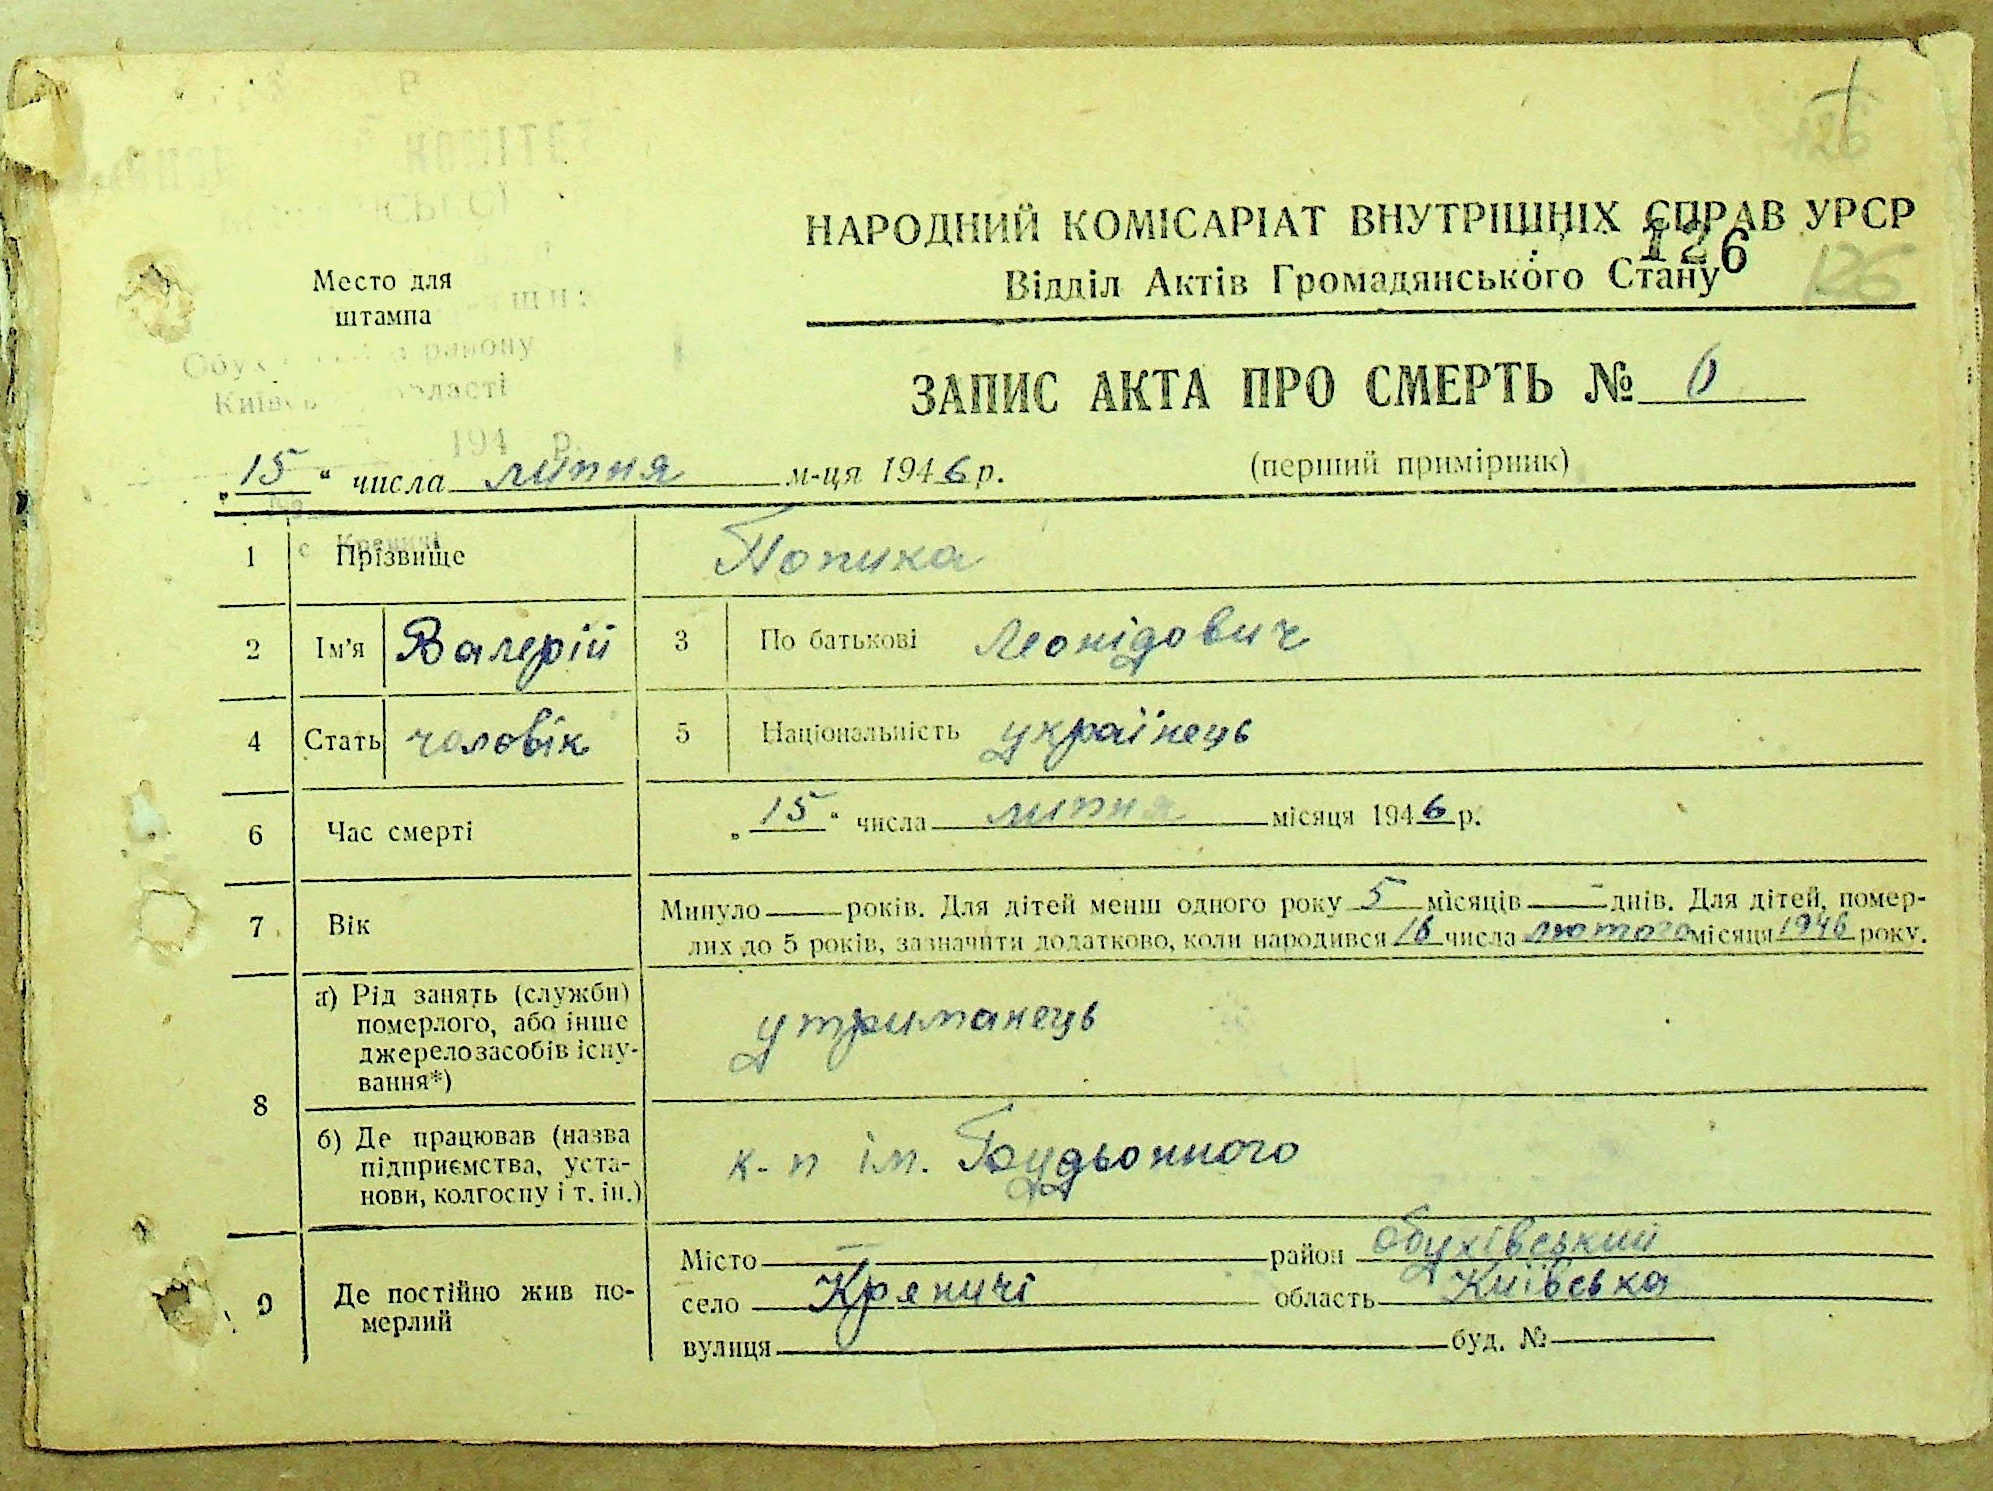 126
НАРОДНИЙ КОМІСАРІАТ ВНУТРІШНІХ СПРАВ УРСР
126
Відділ Актів Громадянського Стану
126
Место для
штампа
району
області
194 р.
ЗАПИС АКТА ПРО СМЕРТЬ №
(перший примірник)
„15“ числа липня м-ця 1946 р.
1 Прізвище Попика
2 Ім'я Валерій 3 По батькові Леонідович
4 Стать чоловік 5 Національність українець
6 Час смерті „15“ числа липня місяця 1946 р.
7 Вік Минуло — років. Для дітей менш одного року 5 місяців — днів. Для дітей, помер-
лих до 5 років, зазначити додатково, коли народився 16 числа лютого місяця 1946 року.
8 а) Рід занять (служби)
померлого, або інше
джерело засобів існу-
вання*)
утриманець
б) Де працював (назва
підприємства, уста-
нови, колгоспу і т. ін.)
к-п ім. Будьонного
9 Де постійно жив по-
мерлий
Місто — район Обухівський
село Креничі область Київська
вулиця буд. №